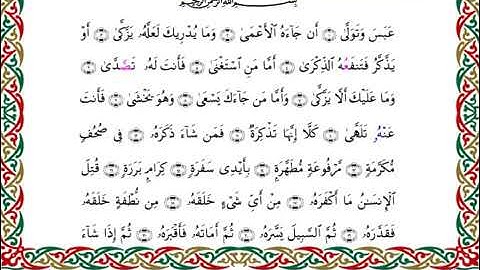 بِسْمِ اللَّهِ الرَّحْمَٰنِ الرَّحِيمِ
عَبَسَ وَتَوَلَّىٰٓ ۝ أَن جَآءَهُ ٱلْأَعْمَىٰ ۝ وَمَا يُدْرِيكَ لَعَلَّهُۥ يَزَّكَّىٰٓ ۝ أَوْ
يَذَّكَّرُ فَتَنفَعَهُ ٱلذِّكْرَىٰٓ ۝ أَمَّا مَنِ ٱسْتَغْنَىٰ ۝ فَأَنتَ لَهُۥ تَصَدَّىٰ ۝
وَمَا عَلَيْكَ أَلَّا يَزَّكَّىٰ ۝ وَأَمَّا مَن جَآءَكَ يَسْعَىٰ ۝ وَهُوَ يَخْشَىٰ ۝ فَأَنتَ
عَنْهُ تَلَهَّىٰ ۝ كَلَّآ إِنَّهَا تَذْكِرَةٌ ۝ فَمَن شَآءَ ذَكَرَهُۥ ۝ فِى صُحُفٍ
مُّكَرَّمَةٍ ۝ مَّرْفُوعَةٍ مُّطَهَّرَةٍۭ ۝ بِأَيْدِى سَفَرَةٍ ۝ كِرَامٍۭ بَرَرَةٍ ۝ قُتِلَ
ٱلْإِنسَٰنُ مَآ أَكْفَرَهُۥ ۝ مِنْ أَىِّ شَىْءٍ خَلَقَهُۥ ۝ مِن نُّطْفَةٍ خَلَقَهُۥ
فَقَدَّرَهُۥ ۝ ثُمَّ ٱلسَّبِيلَ يَسَّرَهُۥ ۝ ثُمَّ أَمَاتَهُۥ فَأَقْبَرَهُۥ ۝ ثُمَّ إِذَا شَآءَ